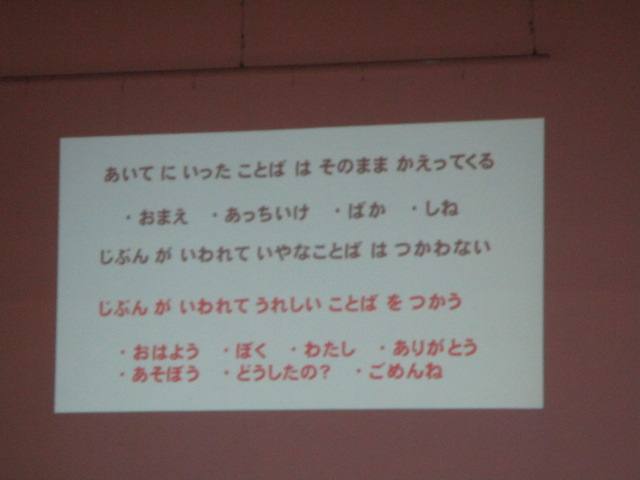 あいて に いった ことば は そのまま かえってくる
・おまえ ・あっちいけ ・ばか ・しね
じぶん が いわれて いやなことば は つかわない
じぶん が いわれて うれしい ことば を つかう
・おはよう ・ぼく ・わたし ・ありがとう
・あそぼう ・どうしたの？ ・ごめんね